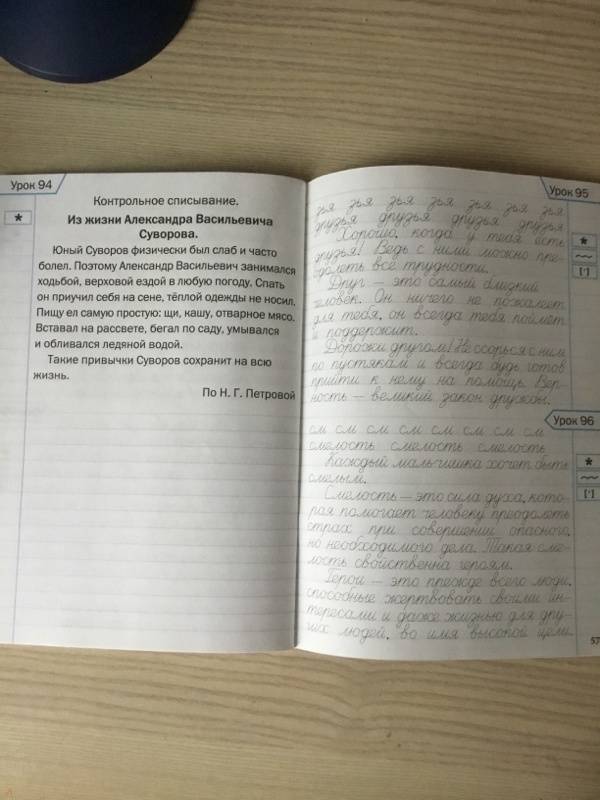 Урок 94
*
Контрольное списывание.
Из жизни Александра Васильевича
Суворова.
Юный Суворов физически был слаб и часто
болел. Поэтому Александр Васильевич занимался
ходьбой, верховой ездой в любую погоду. Спать
он приучил себя на сене, тёплой одежды не носил.
Пищу ел самую простую: щи, кашу, отварное мясо.
Вставал на рассвете, бегал по саду, умывался
и обливался ледяной водой.
Такие привычки Суворов сохранит на всю
жизнь.
По Н. Г. Петровой
Урок 95
*
зья зья зья зья зья зья зья
друзья друзья друзья друзья
Хорошо, когда у тебя есть
друзья! Ведь с ними можно пре-
одолеть все трудности.
Друг – это самый близкий
человек. Он ничего не пожалеет
для тебя, он всегда тебя поймёт
и поддержит.
Дорожи другом! Не ссорься с ним
по пустякам и всегда будь готов
прийти к нему на помощь. Вер-
ность – великий закон дружбы.
Урок 96
*
см см см см см см см см
смелость смелость смелость
Каждый мальчишка хочет быть
смелым.
Смелость – это сила духа, кото-
рая помогает человеку преодолеть
страх при совершении опасного,
но необходимого дела. Такая сме-
лость свойственна героям.
Герои – это прежде всего люди,
способные жертвовать своими ин-
тересами и даже жизнью для дру-
гих людей, во имя высокой цели
57